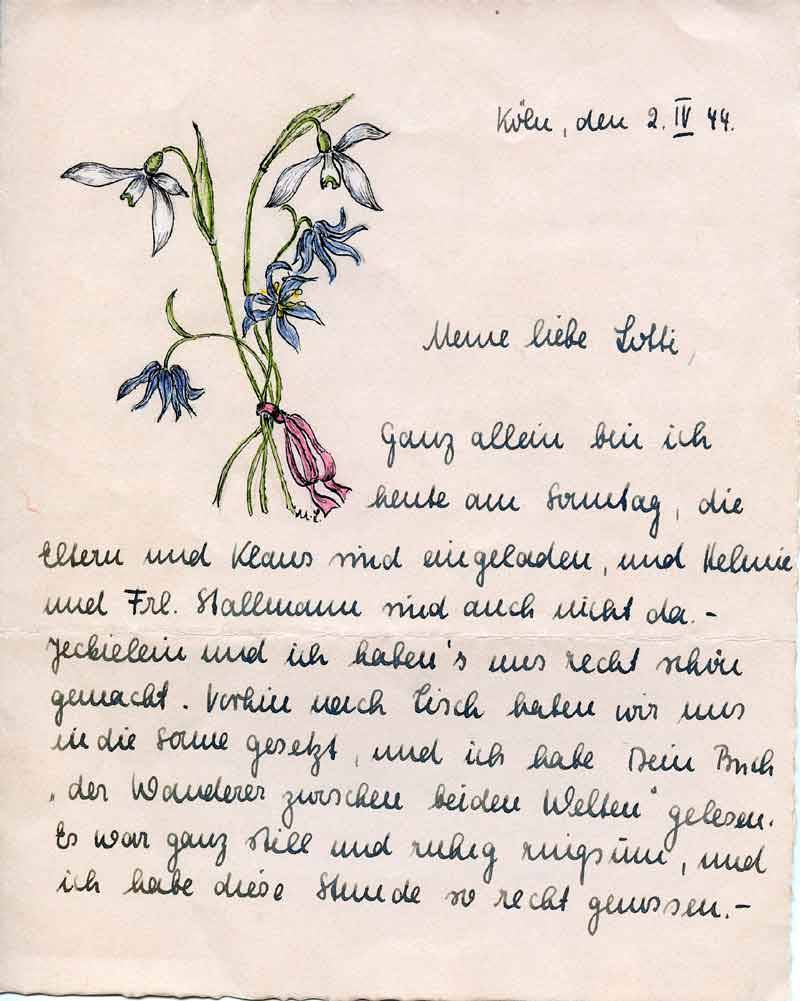 Köln, den 2. IV 44.
Meine liebe Lotti,
Ganz allein bin ich
heute am Sonntag, die
Eltern und Klaus sind eingeladen, und Helmie
und Frl. Stallmann sind auch nicht da. –
Jeckielein und ich haben's uns recht schön
gemacht. Vorhin nach Tisch haben wir uns
in die Sonne gesetzt, und ich habe Dein Buch
„der Wanderer zwischen beiden Welten" gelesen.
Es war ganz still und ruhig ringsum, und
ich habe diese Stunde so recht genossen. –